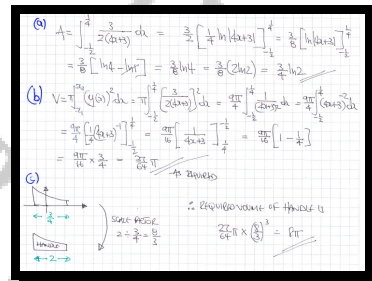 (a) A = ∫_{-1/2}^{1/4} 3/(2(4x+3)) dx = 3/2 [1/4 ln|4x+3|]_{-1/2}^{1/4} = 3/8 [ln|4x+3|]_{-1/2}^{1/4}
= 3/8 [ln4 - ln1] = 3/8 ln4 = 3/8 (2ln2) = 3/4 ln2
(b) V = π∫_{x₁}^{x₂} (y(x))² dx = π∫_{-1/2}^{1/4} [3/(2(4x+3))]² dx = 9π/4 ∫_{-1/2}^{1/4} 1/(4x+3)² dx = 9π/4 ∫_{-1/2}^{1/4} (4x+3)⁻² dx
= 9π/4 [-1/4 (4x+3)⁻¹]_{-1/2}^{1/4} = 9π/16 [1/(4x+3)]_{1/4}^{-1/2} = 9π/16 [1 - 1/4]
= 9π/16 × 3/4 = 27/64 π
As REQUIRED
(c)
3/4
SCALE FACTOR
2 ÷ 3/4 = 8/3
HANDLE
2
∴ REQUIRED VOLUME OF HANDLE IS
27/64 π × (8/3)³ = 8π